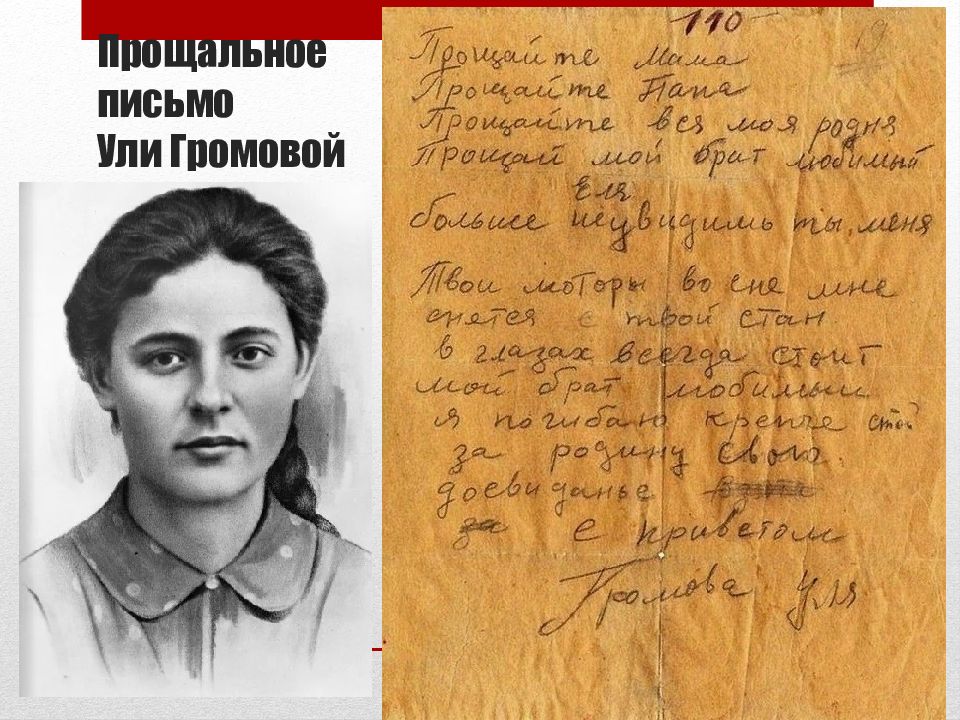 Прощальное
письмо
Ули Громовой
110
19
Прощайте Мама
Прощайте Папа
Прощайте вся моя родня
Прощай мой брат любимый
Еля
больше неувидишь ты, меня
Твои моторы во сне мне
снется с твой стан
в глазах всегда стоит
мой брат любимый
я погибаю крепче стой
за родину свою.
досвиданье
за
С приветом
Громова Уля